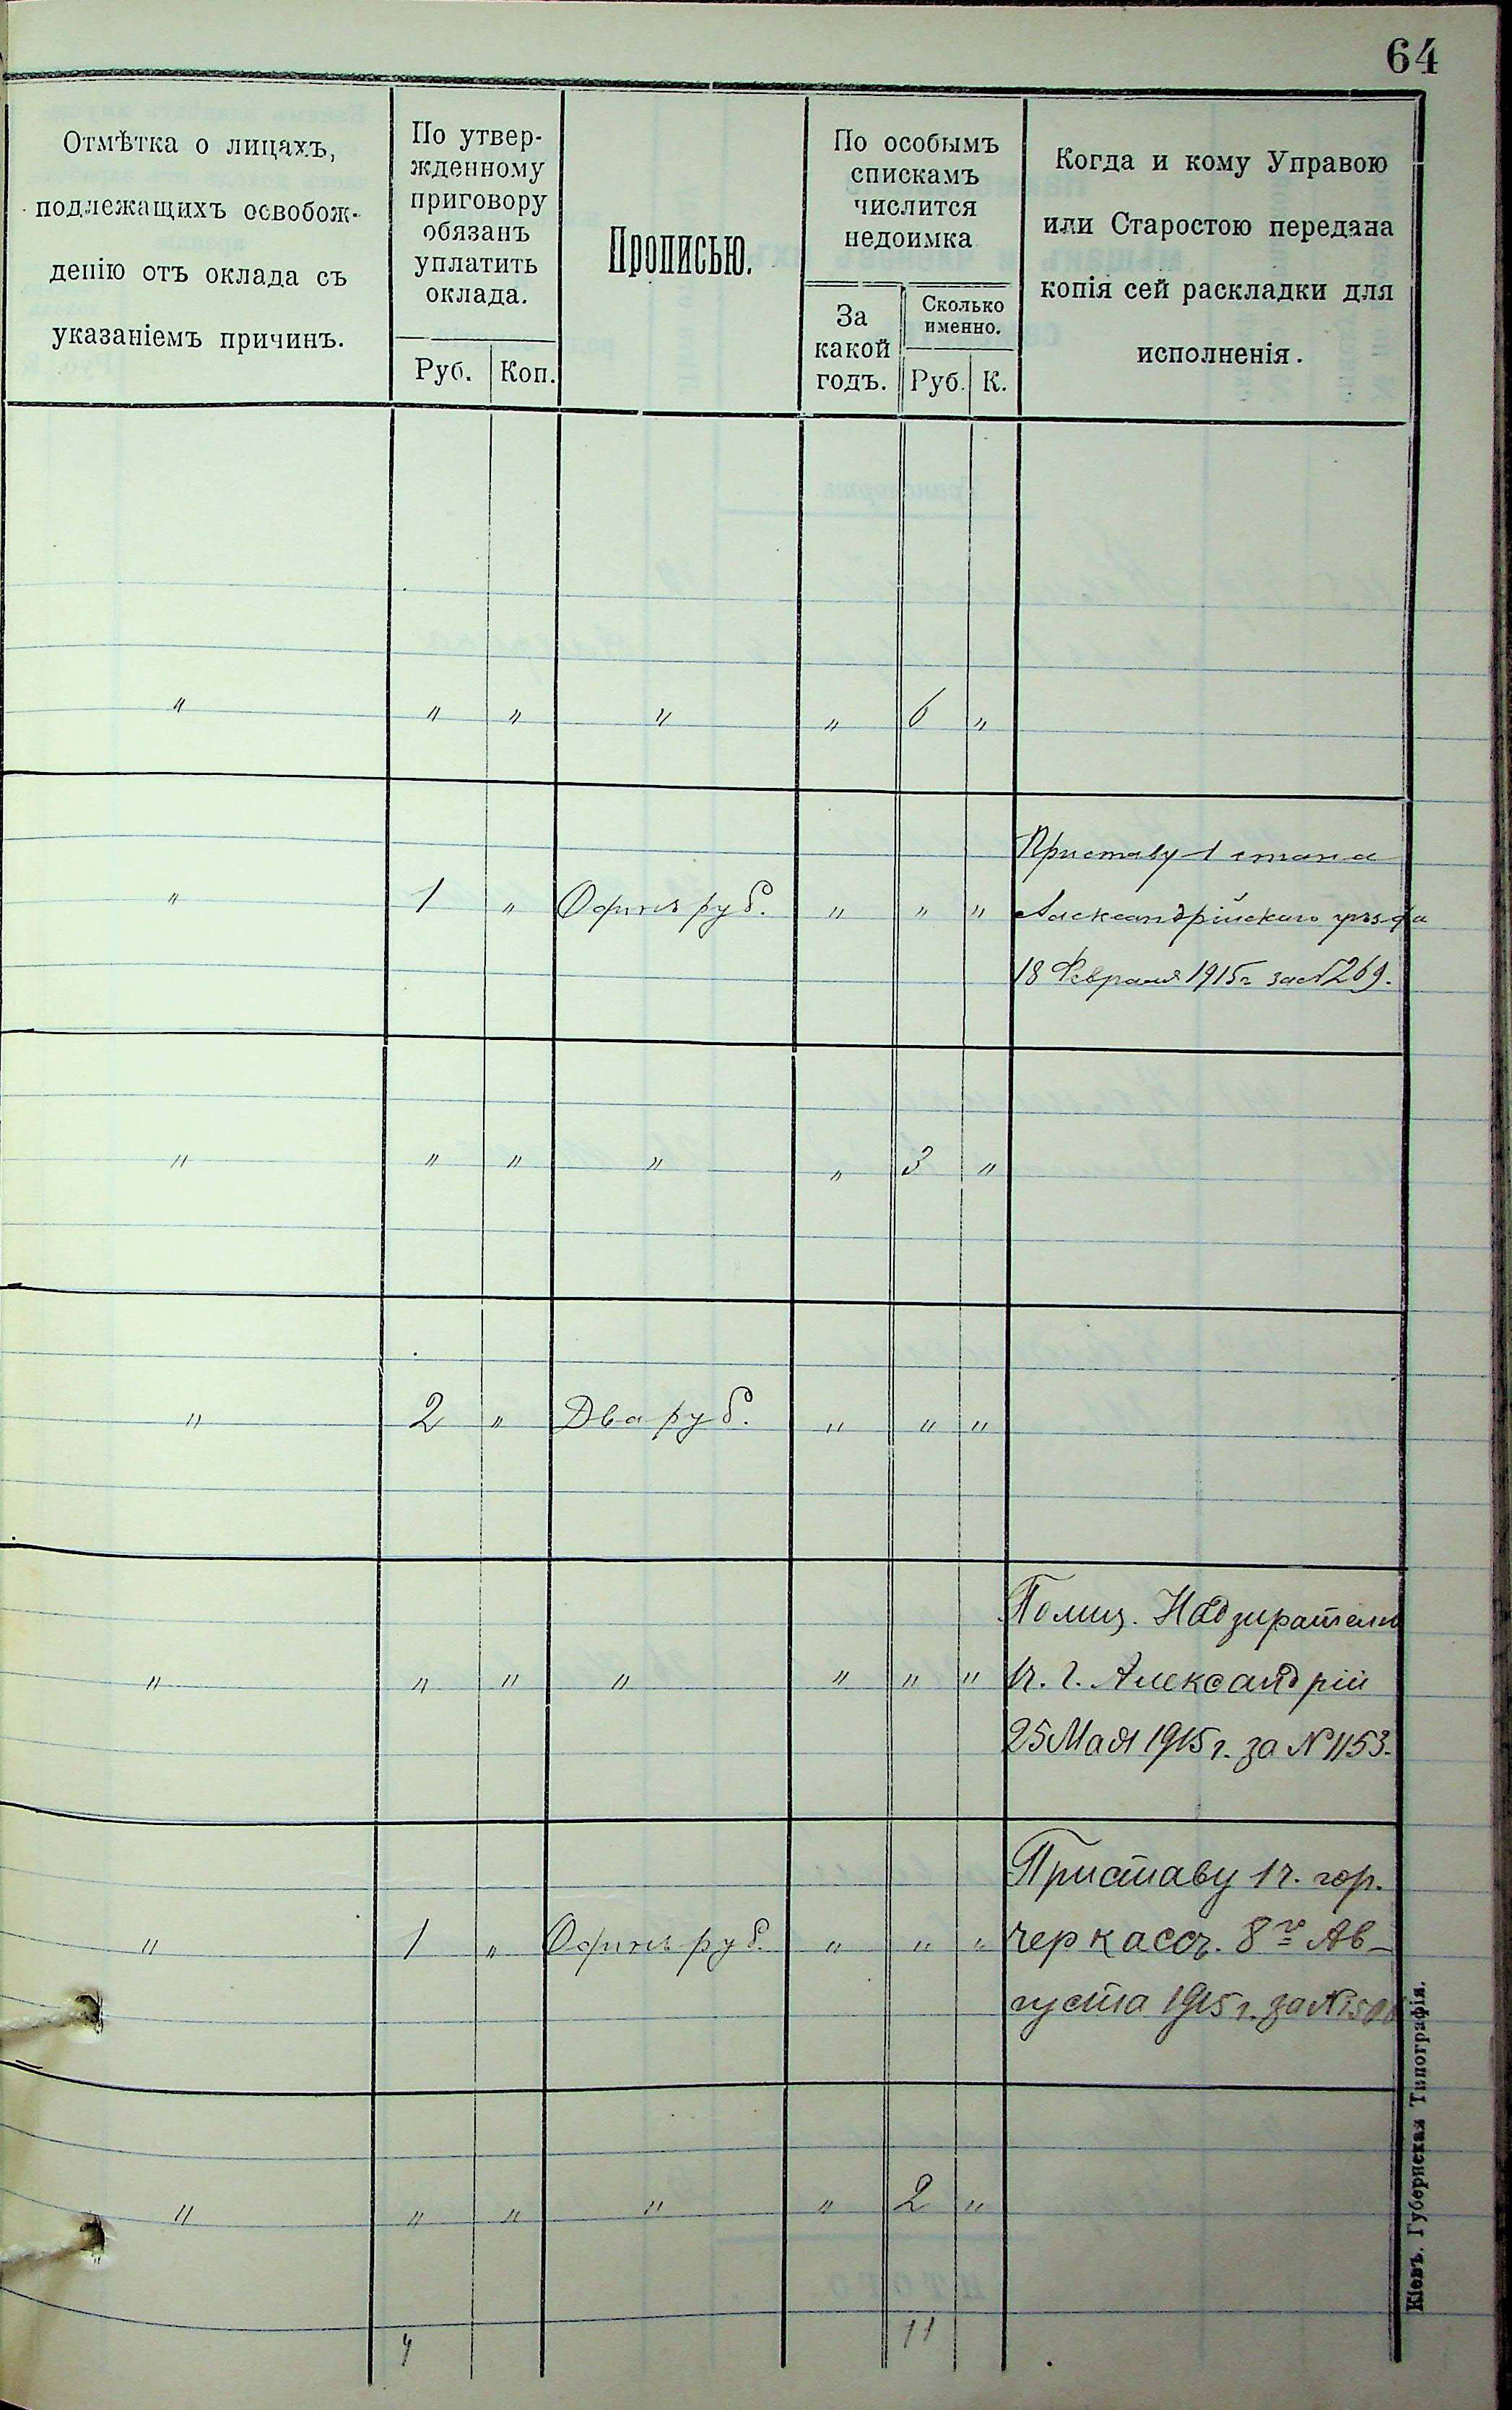 64
Отмѣтка о лицахъ,
подлежащихъ освобож-
денію отъ оклада съ
указаніемъ причинъ.
По утвер-
жденному
приговору
обязанъ
уплатить
оклада.
Руб.
Коп.
Прописью.
По особымъ
спискамъ
числится
недоимка
За
какой
годъ.
Сколько
именно.
Руб.
К.
Когда и кому Управою
или Старостою передана
копія сей раскладки для
исполненія.
" " " " " 6 "
" 1 " Одинъ руб. " " "
Приставу 1 стана
Александрійскаго уѣзда
18 Февраля 1915г за № 269.
" " " " " 3 "
" 2 " Два руб. " " "
" " " " " " "
Полиц. Надзирателю
1ч. г. Александріи
25 Мая 1915 г. за № 1153.
" 1 " Одинъ руб. " " "
Приставу 1ч. гор.
Черкассъ. 8го Ав-
густа 1915 г. за №
" " " " " 2 "
4 11
Кіевъ. Губернская Типографія.